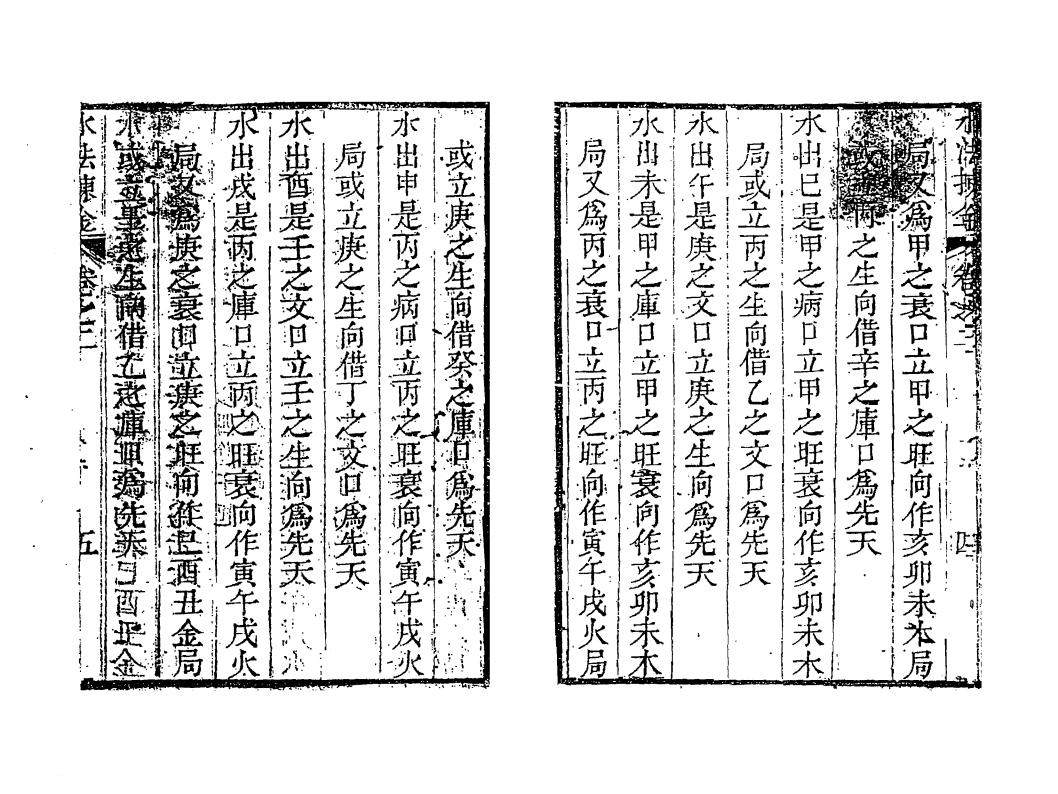 水法 金 卷之三 四
局又爲甲之衰口立甲之旺向作亥卯未木局
或立丙之生向借辛之庫口爲先天
水出巳是甲之病口立甲之旺衰向作亥卯未木
局或立丙之生向借乙之文口爲先天
水出午是庚之文口立庚之生向爲先天
水出未是甲之庫口立甲之旺衰向作亥卯未木
局又爲丙之衰口立丙之旺向作寅午戌火局
或立庚之生向借癸之庫口爲先天
水出申是丙之病口立丙之旺衰向作寅午戌火
局或立庚之生向借丁之文口爲先天
水出酉是壬之文口立壬之生向爲先天
水出戌是丙之庫口立丙之旺衰向作寅午戌火
局又爲庚之衰口立庚之旺向作巳酉丑金局
水或立 之生向借乙之庫口爲先天 酉 金
水法 金 卷之三 五